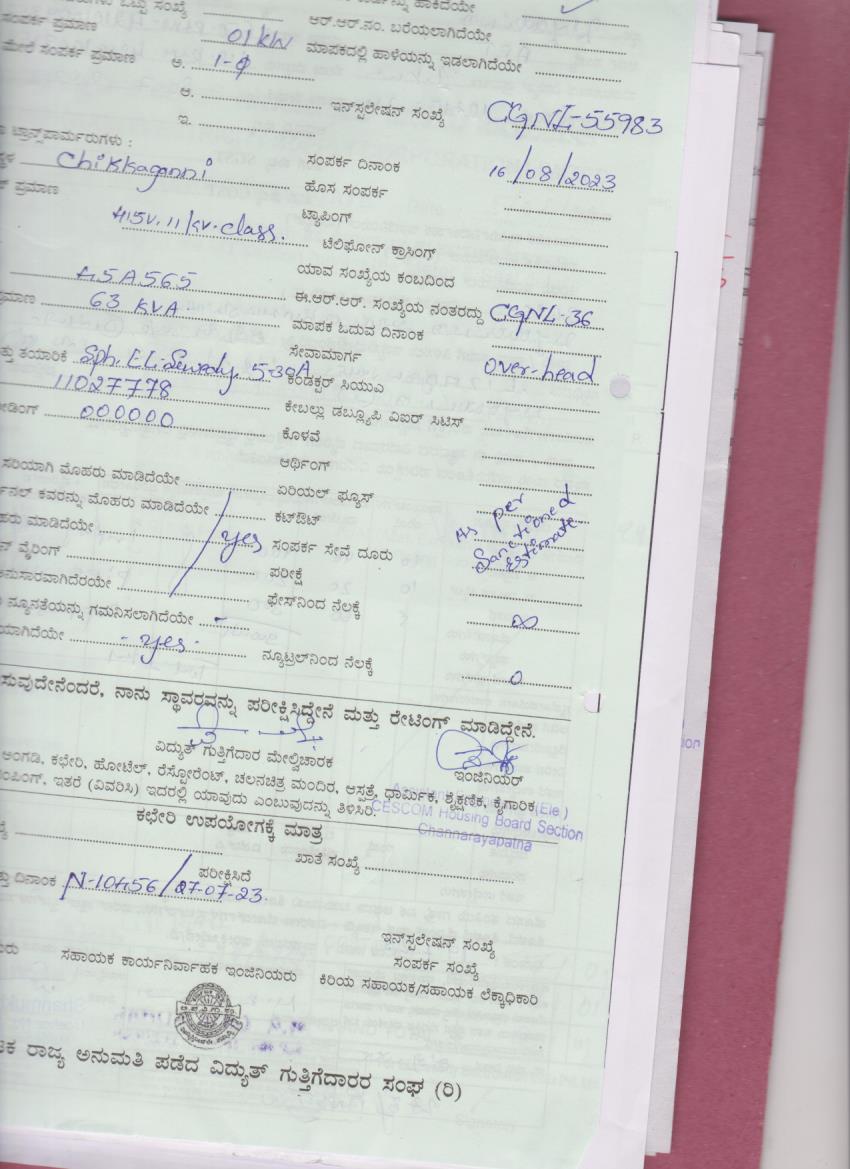 ಒಟ್ಟು ಸಂಖ್ಯೆ ಹಾಕಿದೆಯೇ
ಸಂಪರ್ಕ ಪ್ರಮಾಣ 01 KW ಆರ್.ಆರ್.ನಂ. ಬರೆಯಲಾಗಿದೆಯೇ
ಮೇಲೆ ಸಂಪರ್ಕ ಪ್ರಮಾಣ ಅ. 1-Φ ಮಾಪಕದಲ್ಲಿ ಹಾಳೆಯನ್ನು ಇಡಲಾಗಿದೆಯೇ
ಆ. ಇನ್‌ಸ್ಟಲೇಷನ್ ಸಂಖ್ಯೆ CGNL-55983
ಇ.
ಟ್ರಾನ್ಸ್‌ಪಾರ್ಮರುಗಳು :
Chikkaganni ಸಂಪರ್ಕ ದಿನಾಂಕ 16/08/2023
ಪ್ರಮಾಣ ಹೊಸ ಸಂಪರ್ಕ
415V. 11/KV. class. ಟ್ಯಾಪಿಂಗ್
ಟೆಲಿಫೋನ್ ಕ್ರಾಸಿಂಗ್
45A565 ಯಾವ ಸಂಖ್ಯೆಯ ಕಂಬದಿಂದ
63 KVA ಈ.ಆರ್.ಆರ್. ಸಂಖ್ಯೆಯ ನಂತರದ್ದು CGNL-36
ಮಾಪಕ ಓದುವ ದಿನಾಂಕ
ತಯಾರಿಕೆ 5-30A ಸೇವಾಮಾರ್ಗ over-head
11027778 ಕಂಡಕ್ಟರ್ ಸಿಯುವಿ
000000 ಕೇಬಲ್ಲು ಡಬ್ಲ್ಯೂಪಿ ವಿಐರ್ ಸಿಟಿಸ್
ಕೊಳವೆ
ಆರ್ಥಿಂಗ್
ಸರಿಯಾಗಿ ಮೊಹರು ಮಾಡಿದೆಯೇ ಏರಿಯಲ್ ಫ್ಯೂಸ್
ಕವರನ್ನು ಮೊಹರು ಮಾಡಿದೆಯೇ ಕಟ್‌ಔಟ್ As per
ಮಾಡಿದೆಯೇ yes ಸಂಪರ್ಕ ಸೇವೆ ದೂರು Sanctioned
ವೈರಿಂಗ್ ಪರೀಕ್ಷೆ estimate
ಅನುಸಾರವಾಗಿದೆರಯೇ ಫೇಸ್‌ನಿಂದ ನೆಲಕ್ಕೆ ∞
ನ್ಯೂನತೆಯನ್ನು ಗಮನಿಸಲಾಗಿದೆಯೇ -
- yes - ನ್ಯೂಟ್ರಲ್‌ನಿಂದ ನೆಲಕ್ಕೆ 0
ನಾನು ಸ್ಥಾವರವನ್ನು ಪರೀಕ್ಷಿಸಿದ್ದೇನೆ ಮತ್ತು ರೇಟಿಂಗ್ ಮಾಡಿದ್ದೇನೆ.
ವಿದ್ಯುತ್ ಗುತ್ತಿಗೆದಾರ ಮೇಲ್ವಿಚಾರಕ ಇಂಜಿನಿಯರ್
ಅಂಗಡಿ, ಕಛೇರಿ, ಹೋಟೆಲ್, ರೆಸ್ಟೋರೆಂಟ್, ಚಲನಚಿತ್ರ ಮಂದಿರ, ಆಸ್ಪತ್ರೆ, ಧಾರ್ಮಿಕ, ಶೈಕ್ಷಣಿಕ, ಕೈಗಾರಿಕ
ಇತರೆ (ವಿವರಿಸಿ) ಇದರಲ್ಲಿ ಯಾವುದು ಎಂಬುವುದನ್ನು ತಿಳಿಸಿರಿ.
(Ele)
CESCOM Housing Board Section
Channarayapatna
ಕಛೇರಿ ಉಪಯೋಗಕ್ಕೆ ಮಾತ್ರ
ಖಾತೆ ಸಂಖ್ಯೆ
ಪರೀಕ್ಷಿಸಿದೆ
ದಿನಾಂಕ N-10456/27-07-23
ಇನ್‌ಸ್ಟಲೇಷನ್ ಸಂಖ್ಯೆ
ಸಂಪರ್ಕ ಸಂಖ್ಯೆ
ಸಹಾಯಕ ಕಾರ್ಯನಿರ್ವಾಹಕ ಇಂಜಿನಿಯರು ಕಿರಿಯ ಸಹಾಯಕ/ಸಹಾಯಕ ಲೆಕ್ಕಾಧಿಕಾರಿ
ರಾಜ್ಯ ಅನುಮತಿ ಪಡೆದ ವಿದ್ಯುತ್ ಗುತ್ತಿಗೆದಾರರ ಸಂಘ (ರಿ)